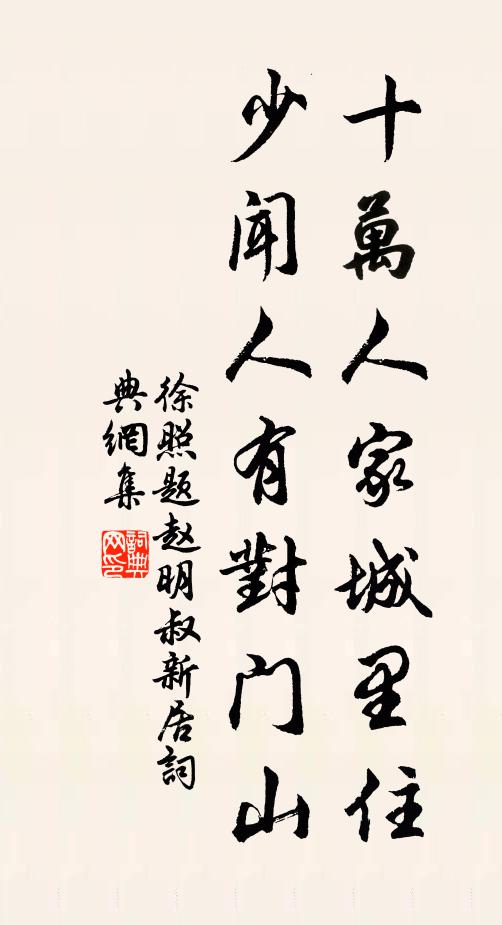 十萬人家城里住
少闻人有對门山
徐照题赵明叔新居詞
典網集
詞典
网印